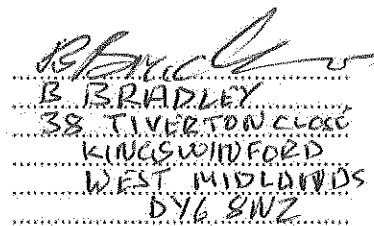 B BRADLEY
38 TIVERTON CLOSE
KINGSWINFORD
WEST MIDLANDS
DY6 8NZ